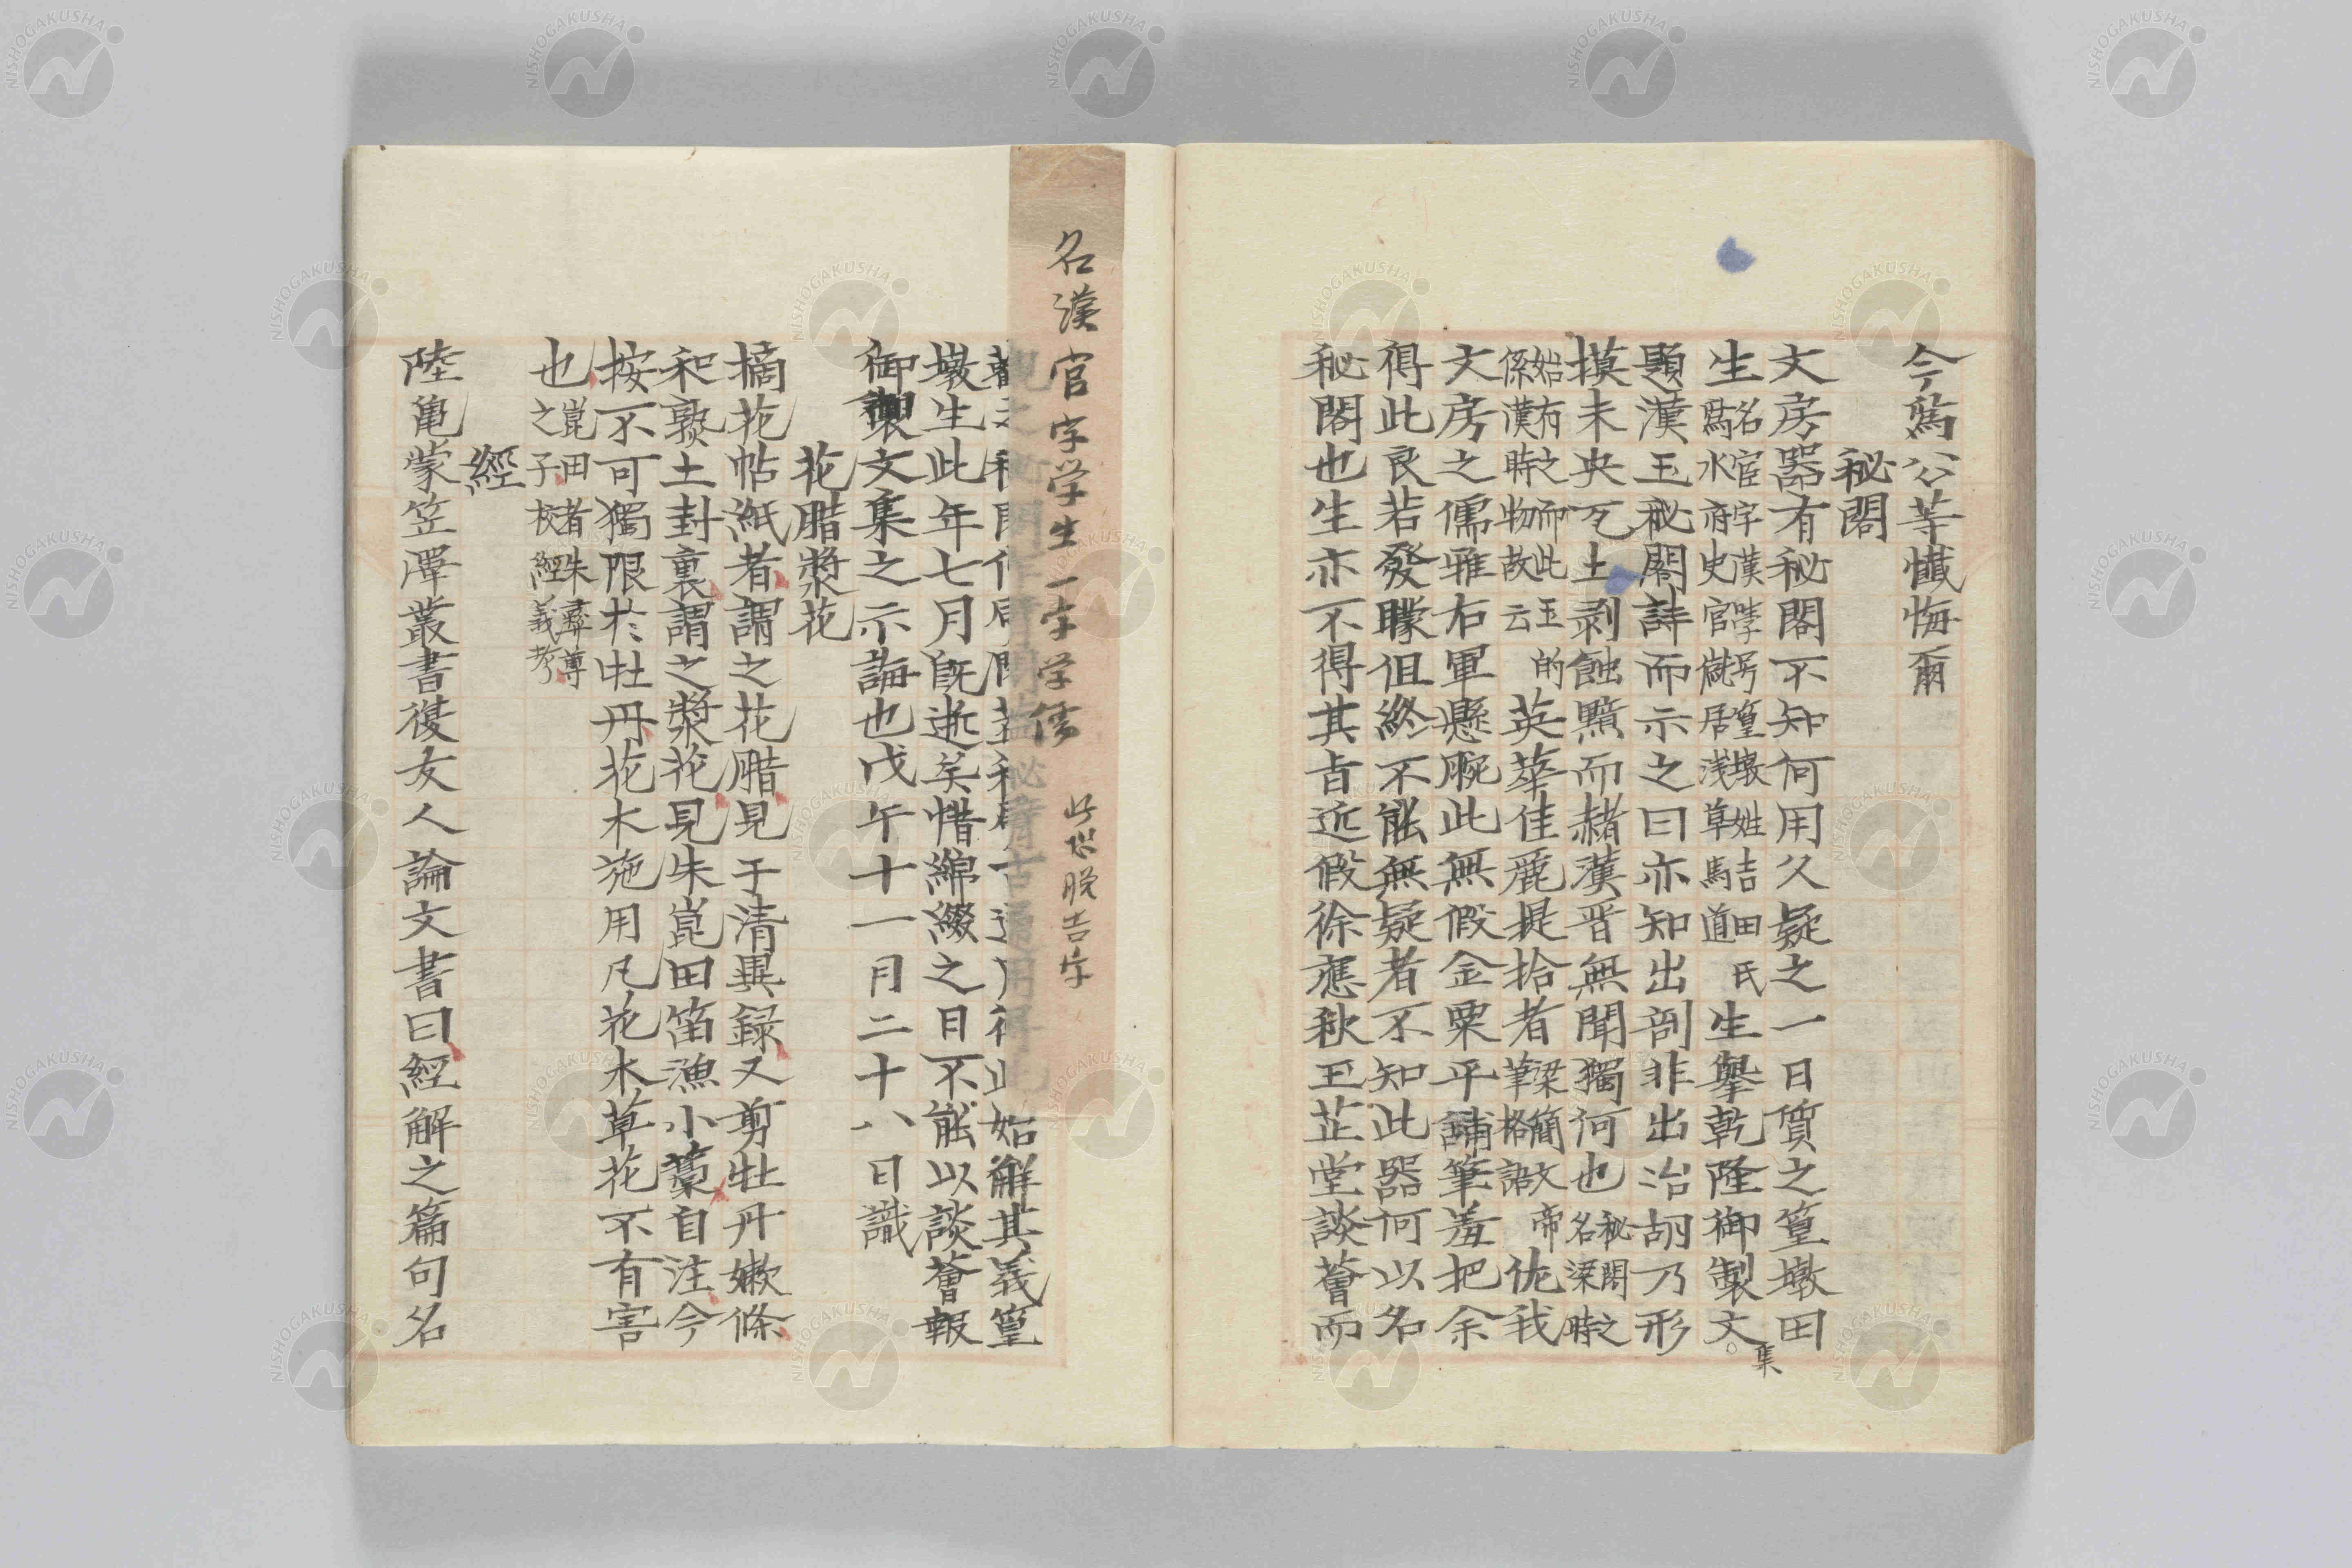 今爲公等懺悔爾
秘閣
文房器有秘閣不知何用久疑之一日質之篁墩田
生名宦字漢 号篁墩姓吉田氏
爲水府史官 居浅草馬道
生擧乾隆御製文集
題漢玉秘閣詩而示之曰亦知出剖非出冶胡乃形
摸未央瓦土剥蝕黯而赭漢晋無聞獨何也秘閣之
名梁時
始有之而此玉的
係漢時物故云
英華佳麗提拾者梁簡文帝
筆格
佐我
文房之儒雅右軍懸腕此無假金粟平鋪筆羞把余
得此良若發矇但終不能無疑者不知此器何以名
秘閣也生亦不得其旨近假徐應秋玉芷堂談薈而
名漢官字学生一字学儒
此恐脱吉字
始解其義篁
墩生此年七月既逝矣惜綿綴之日不能以談薈報
御製文集之示誨也戊午十一月二十八日識
花腊漿花
摘花帖紙者謂之花腊見于清異録又剪牡丹嫩條
和㷛土封裏謂之漿花見朱崑田笛漁小藁自注今
按不可獨限於牡丹花木施用凡花木草花不有害
也崑田者朱彝尊
之子校經義考
經
陸亀蒙笠澤叢書復友人論文書曰經解之篇句名